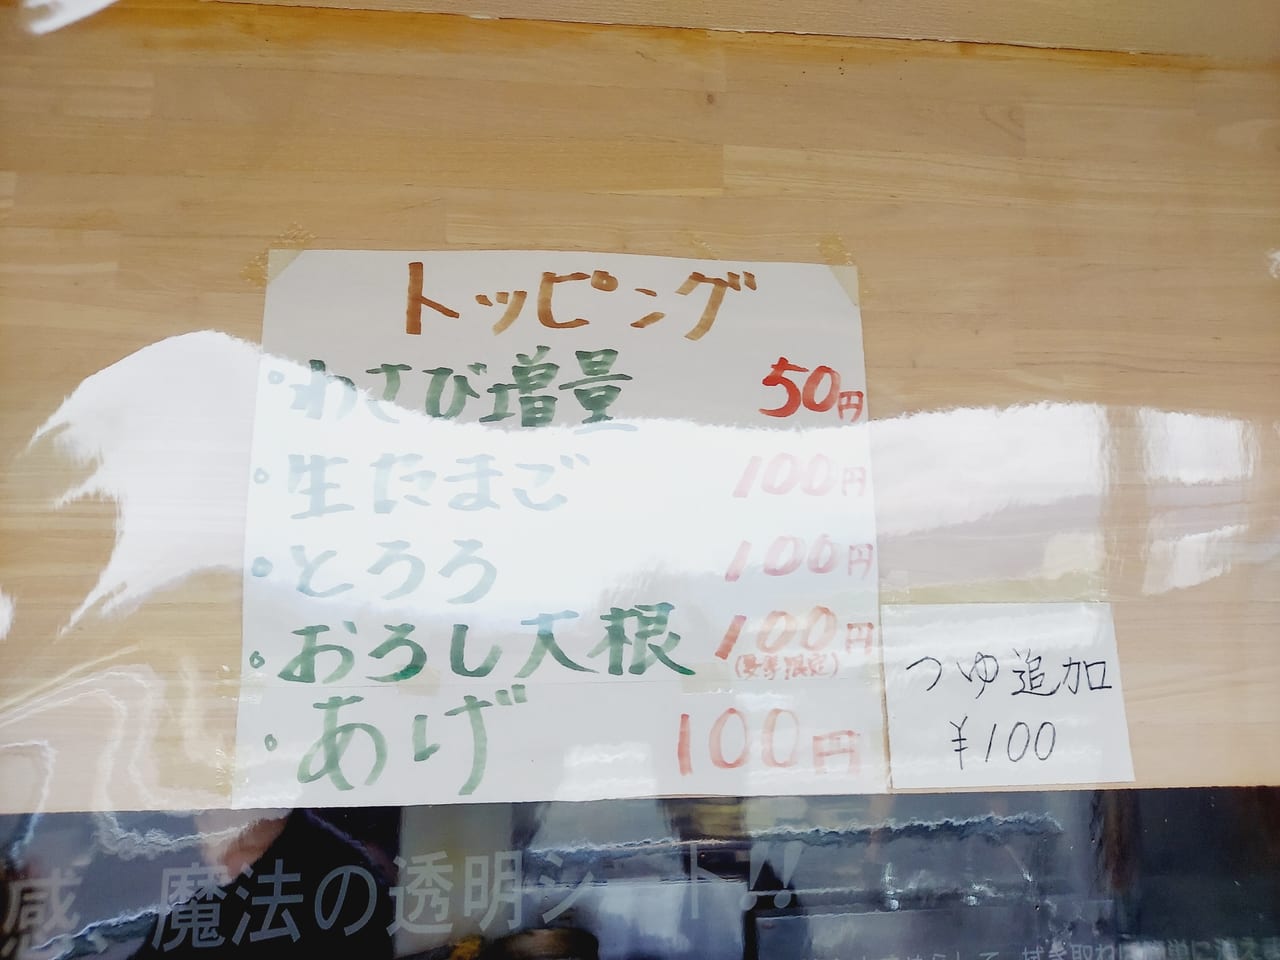 トッピング
。わさび増量 50円
。生たまご 100円
。とろろ 100円
。おろし大根 100円
(夏季限定)
。あげ 100円
つゆ追加
¥100
感、魔法の透明シート!!